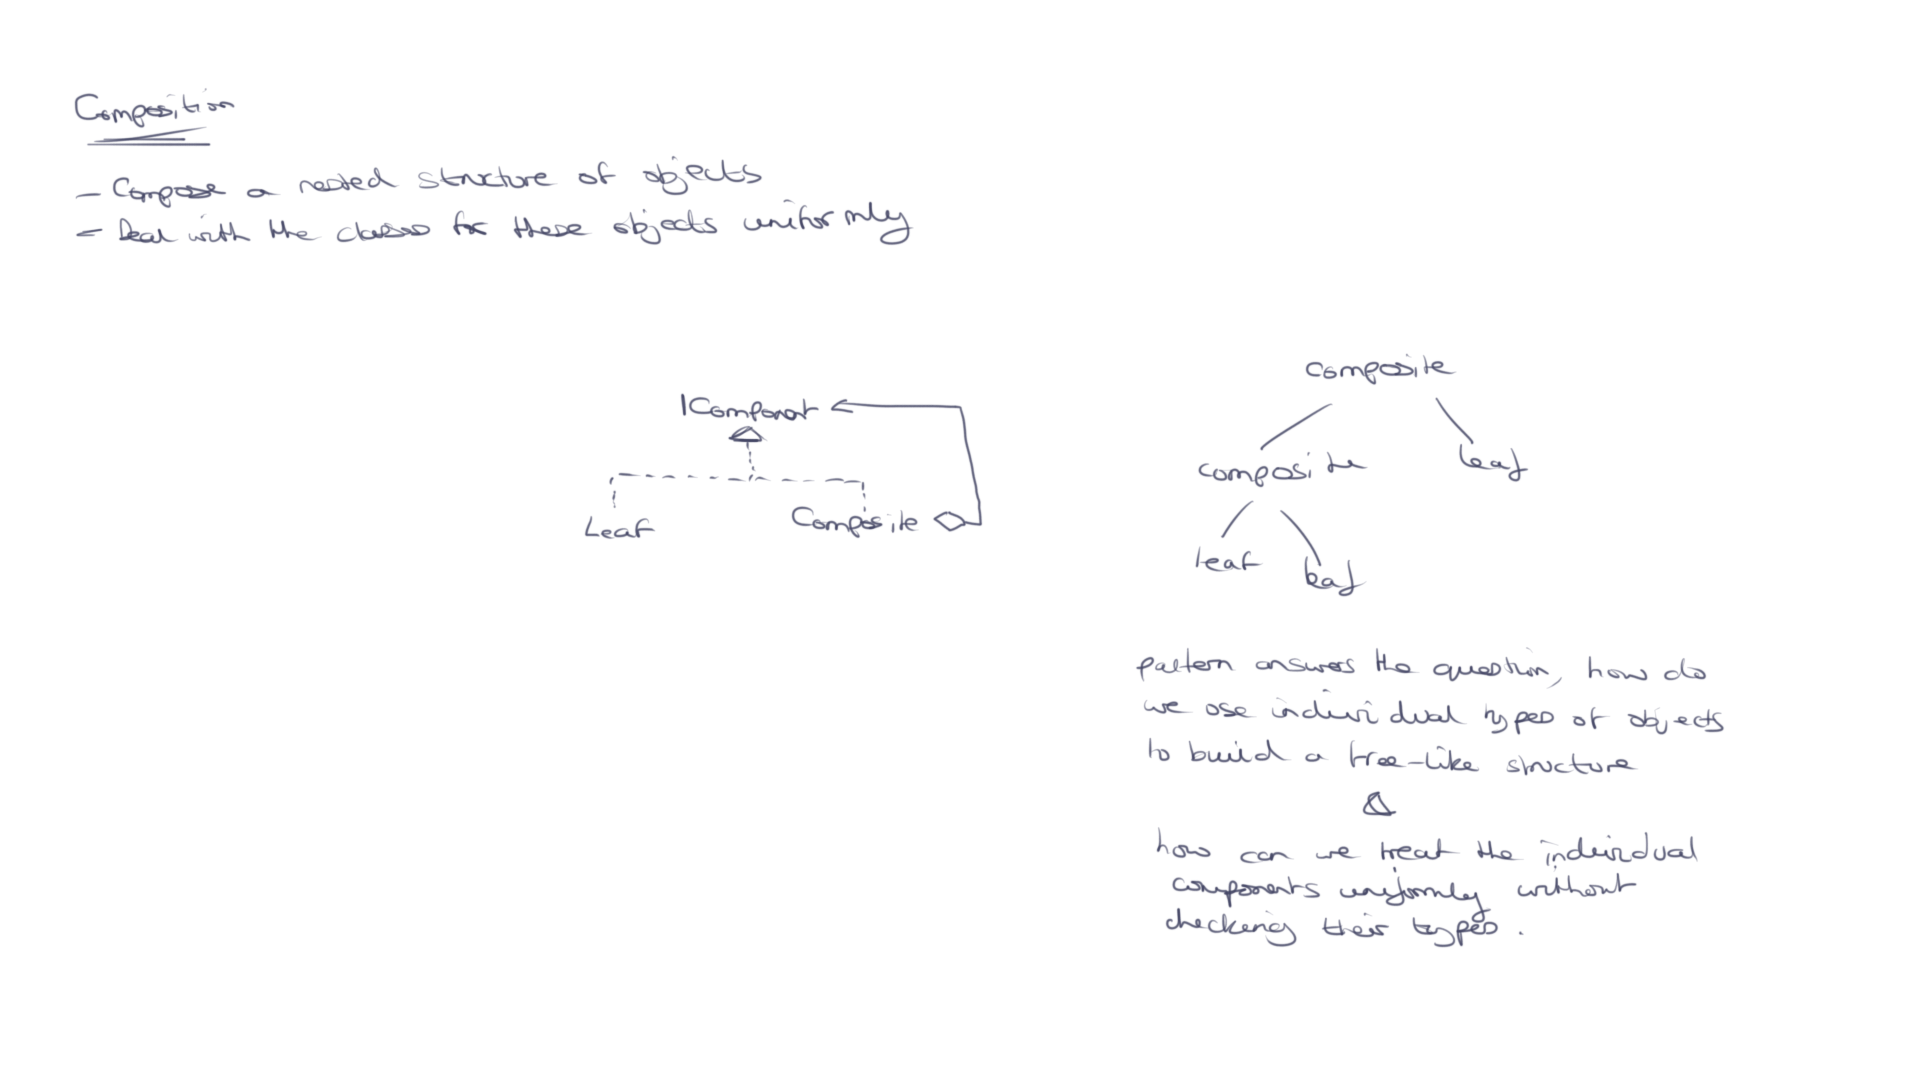 Composition
- Compose a nested structure of objects
- Deal with the classes for these objects uniformly
IComponent
Leaf
Composite
composite
composite
leaf
leaf
leaf
pattern answers the question, how do
we use individual types of objects
to build a tree-like structure
&
how can we treat the individual
components uniformly without
checking their types.